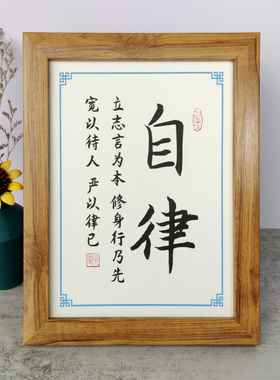 自律
立志言为本 修身行乃先
宽以待人 严以律己